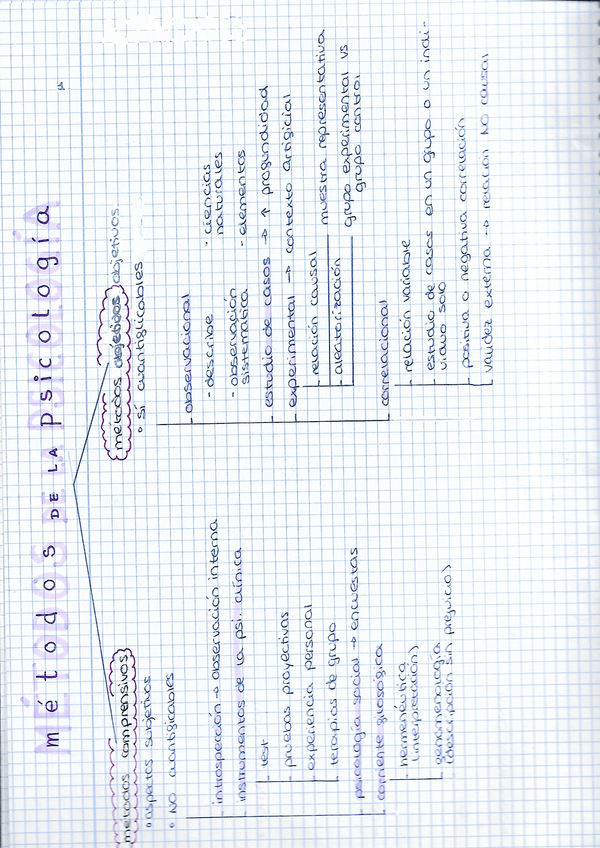 métodos DE LA Psicología
métodos comprensivos
° aspectos subjetivos
° NO cuantificables
introspección → observación interna
instrumentos de la psi. clínica
test
pruebas proyectivas
experiencia personal
terapias de grupo
psicología social → encuestas
corriente filosófica
hermenéutica
(interpretación)
fenomenología
(descripción sin prejuicio)
métodos objetivos objetivos
° sí cuantificables
observacional
· describe
· ciencias
naturales
· observación
sistemática
· elementos
estudio de casos → ↑ profundidad
experimental → contexto artificial
relación causal
aleatorización
muestra representativa
grupo experimental vs
grupo control
correlacional
relación variable
estudio de casos en un grupo o un indi-
viduo solo
positiva o negativa correlación
validez externa → relación NO causal